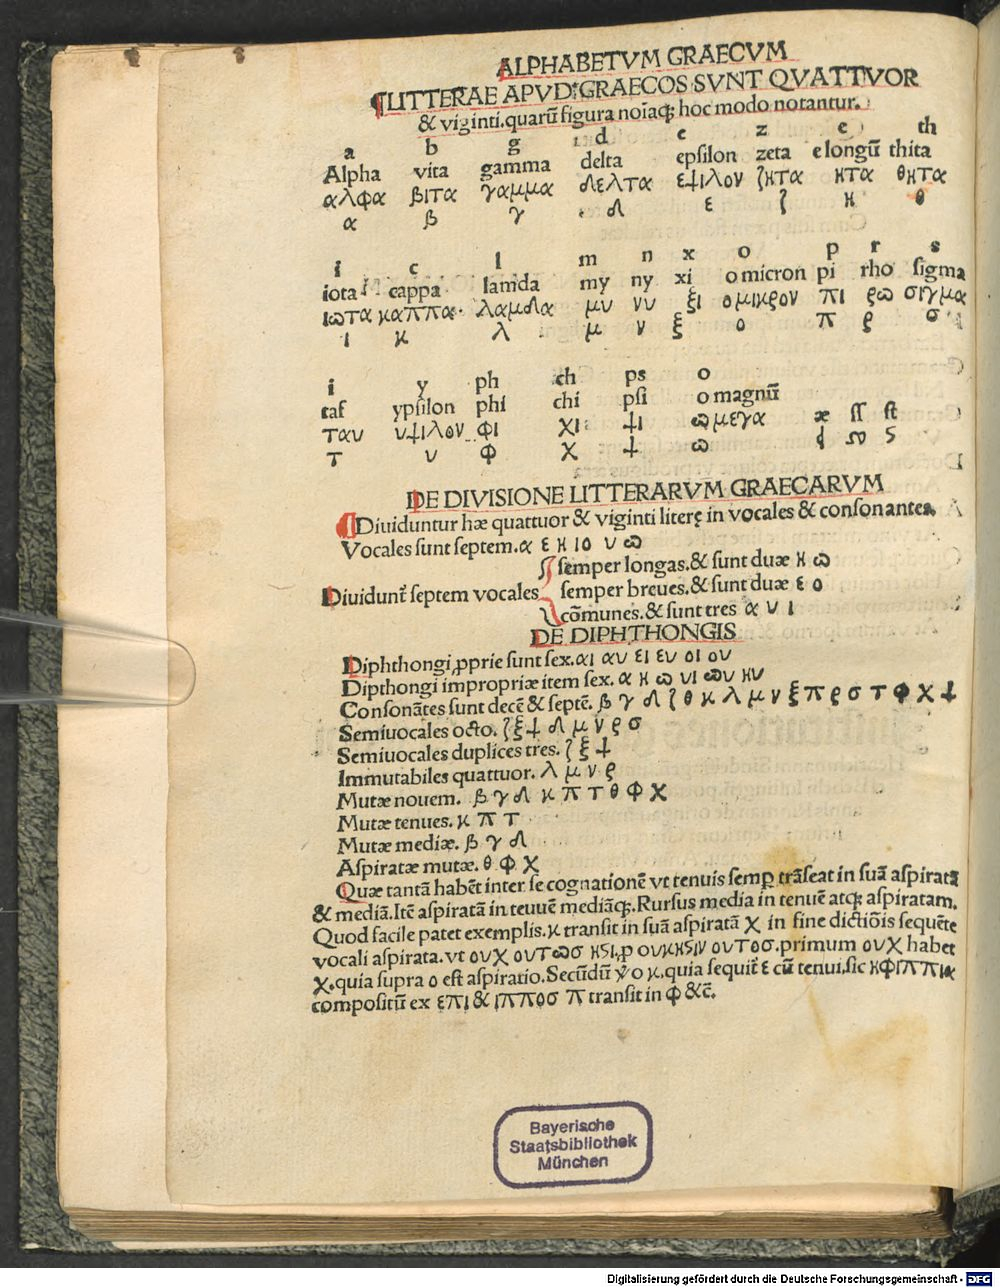 ALPHABETVM GRAECVM
LITTERAE APVD GRAECOS SVNT QVATTVOR
& viginti. quarū figura noiāq; hoc modo notantur.
a b g d e z e th
Alpha vita gamma delta epsilon zeta e longū thita
αλφα βιτα γαμμα δελτα εψιλον ζητα ητα θητα
α β γ δ ε ζ η θ
i c l m n x o p r s
iota cappa lamda my ny xi o micron pi rho sigma
ιωτα καππα λαμδα μυ νυ ξι ομικρον πι ρω σιγμα
ι κ λ μ ν ξ ο π ρ σ
t y ph ch ps o
taf ypsilon phi chi psi o magnū
ταυ υψιλον φι χι ψι ωμεγα æ ſſ ſt
τ υ φ χ ψ ω
DE DIVISIONE LITTERARVM GRAECARVM
Diuiduntur hæ quattuor & viginti literę in vocales & consonantes.
Vocales sunt septem. α ε η ι ο υ ω
semper longas. & sunt duæ η ω
Diuidunt̃ septem vocales semper breues. & sunt duæ ε ο
cōmunes. & sunt tres α υ ι
DE DIPHTHONGIS
Diphthongi ꝓprie sunt sex. αι αυ ει ευ οι ου
Dipthongi impropriæ item sex. ᾳ ῃ ῳ υι ωυ ηυ
Consonātes sunt decē & septē. β γ δ ζ θ κ λ μ ν ξ π ρ σ τ φ χ ψ
Semiuocales octo. ζ ξ ψ λ μ ν ρ σ
Semiuocales duplices tres. ζ ξ ψ
Immutabiles quattuor. λ μ ν ρ
Mutæ nouem. β γ δ κ π τ θ φ χ
Mutæ tenues. κ π τ
Mutæ mediæ. β γ δ
Aspiratæ mutæ. θ φ χ
Quæ tantā habēt inter se cognationē vt tenuis semꝑ trāseat in suā aspiratā
& mediā. Itē aspiratā in teuuē mediāq;. Rursus media in tenuē atq; aspiratam.
Quod facile patet exemplis. κ transit in suā aspiratā χ in fine dictiōis sequēte
vocali aspirata. vt ουχ ουτωσ ηϛι, ꝓ ουκηϛιν ουτοσ. primum ουχ habet
χ. quia supra ο est aspiratio. Secūdū ṽo κ. quia sequit̃ ε cū tenui. sic ηφιππια
compositū ex επι & ιπποσ π transit in φ &c̄.
Bayerische
Staatsbibliothek
München
Digitalisierung gefördert durch die Deutsche Forschungsgemeinschaft - DFG